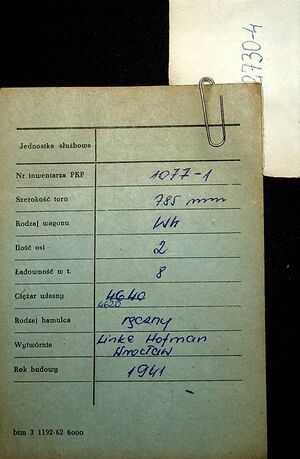 Jednostka służbowa
Nr inwentarza PKP 1077-1
Szerokość toru 785 mm
Rodzaj wagonu Wh
Ilość osi 2
Ładowność w t. 8
Ciężar własny 4640
4620
Rodzaj hamulca ręczny
Wytwórnia Linke Hofman
Wrocław
Rok budowy 1941
btm 3 1192-62 6000